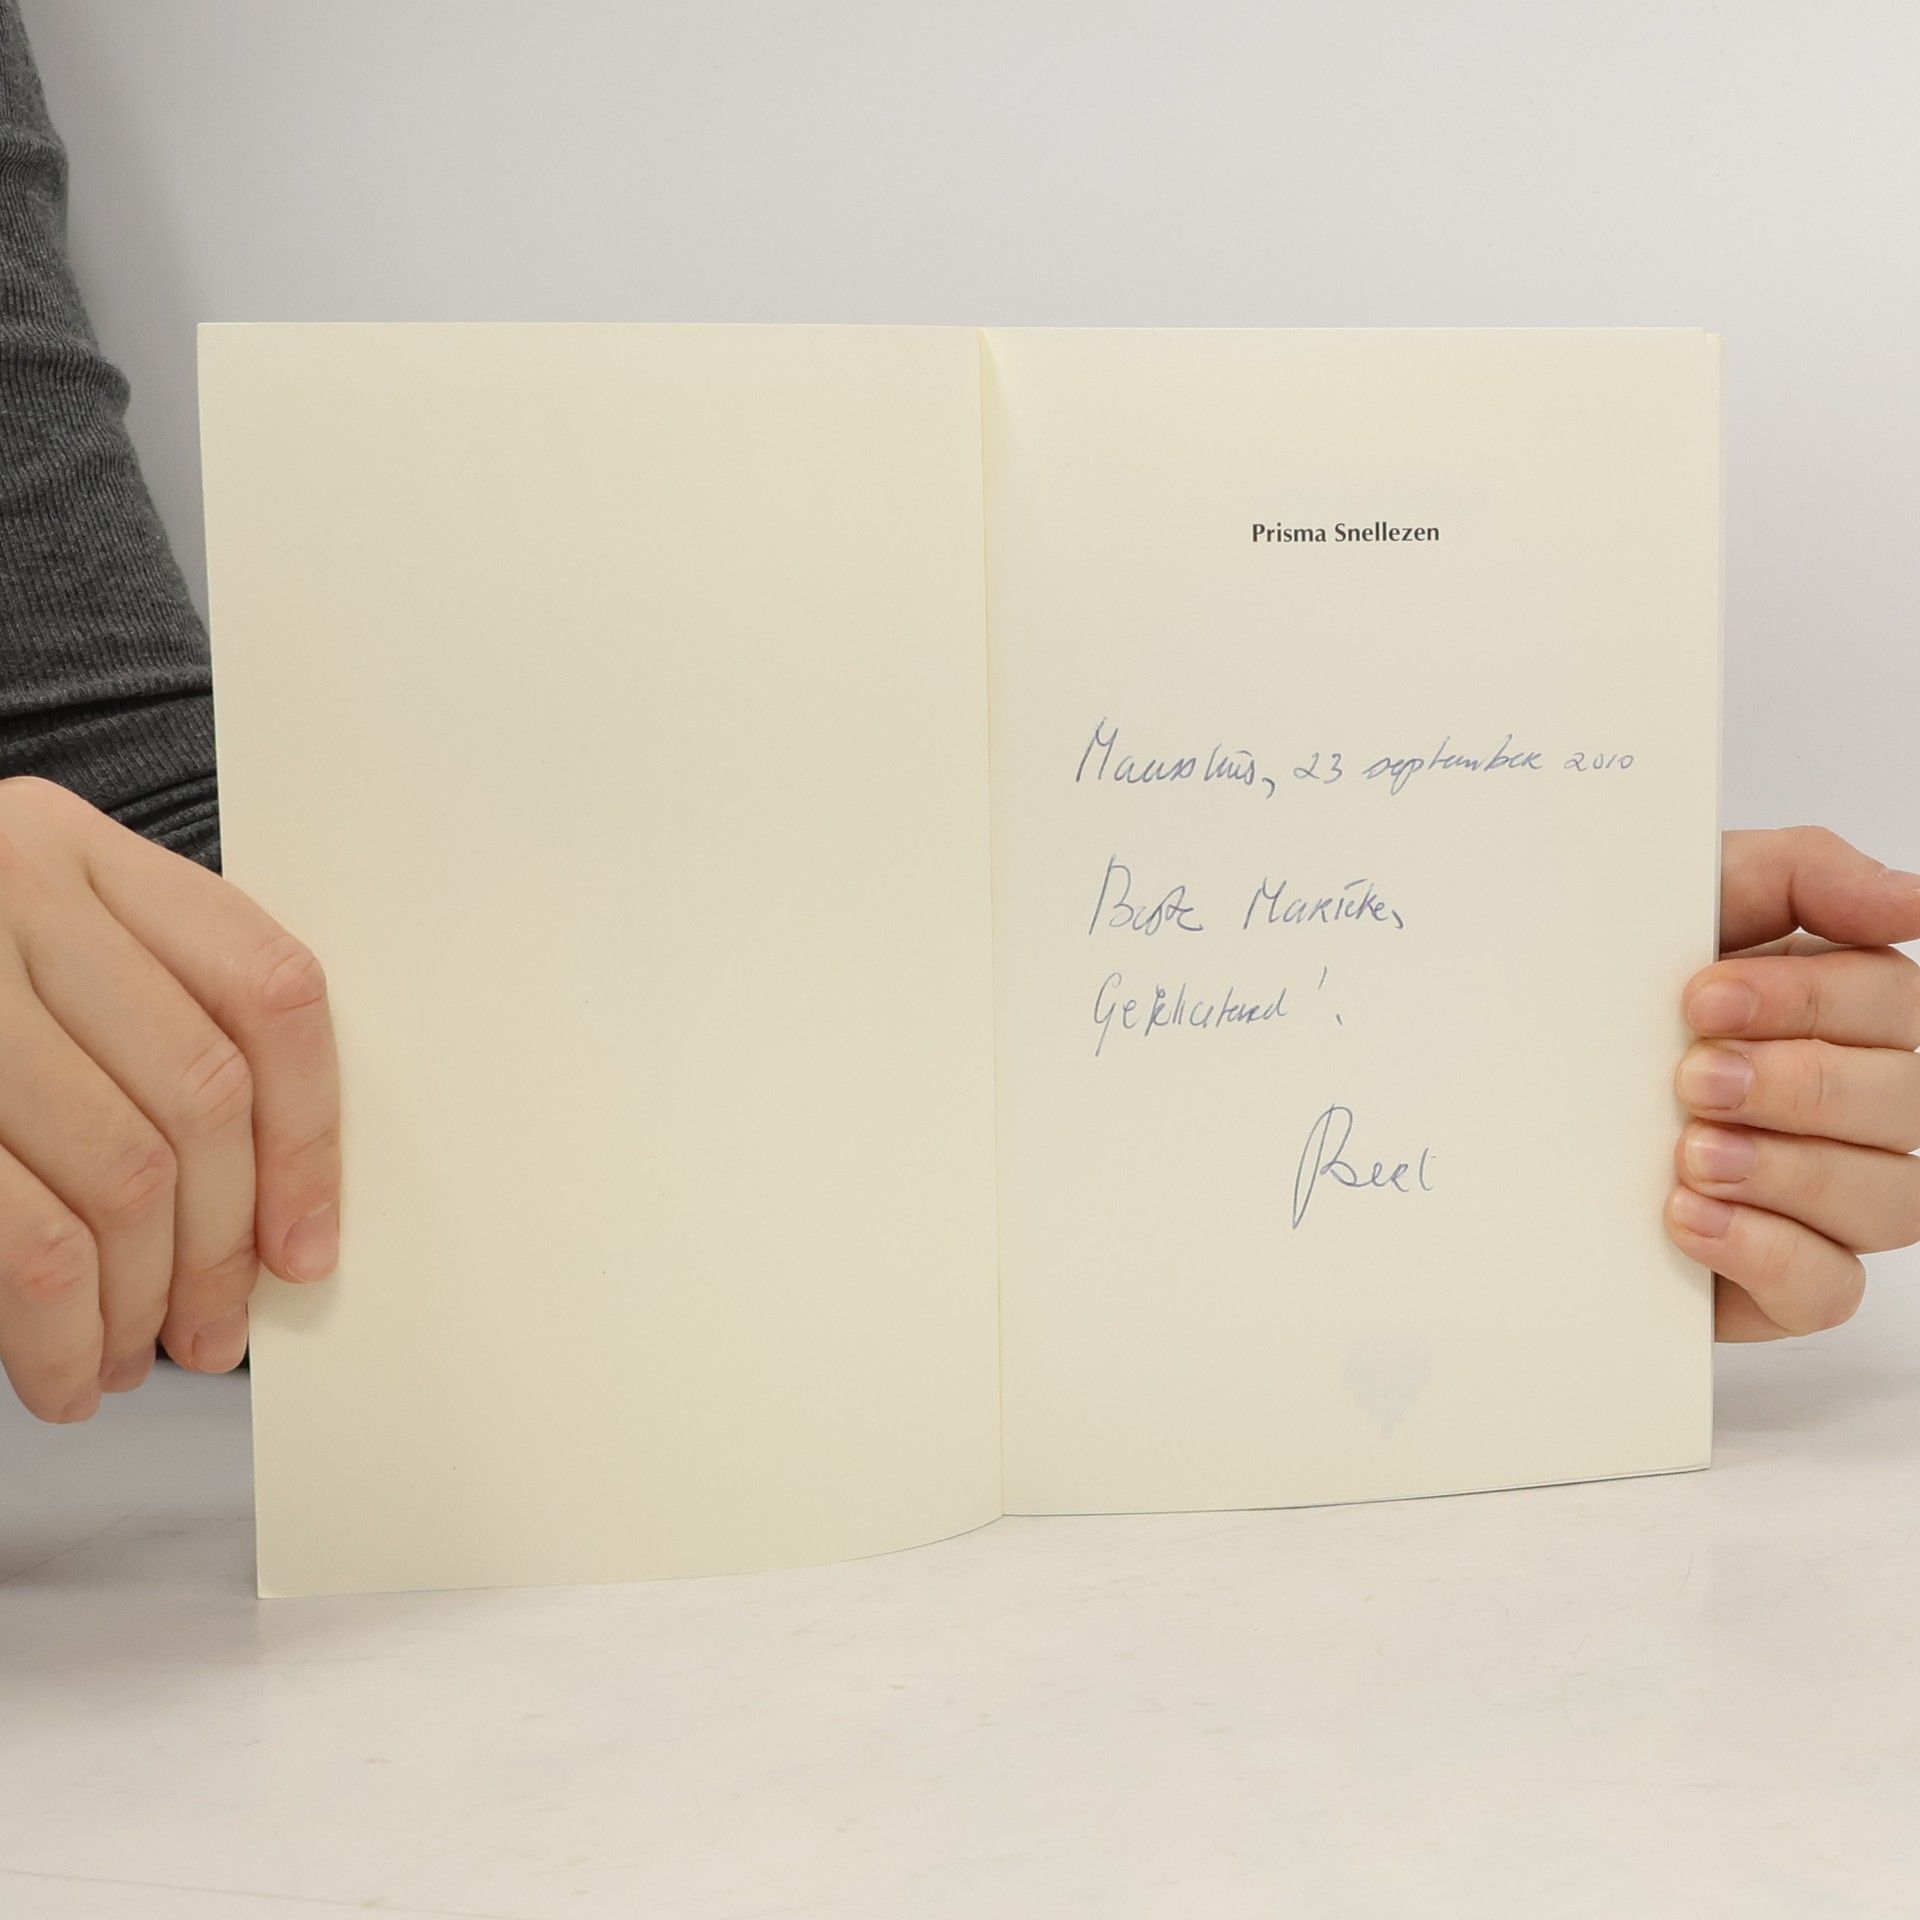 Prisma Snellezen
Maurshuis, 23 september 2010
Beste Marieke,
Gefeliciteerd!
Bert